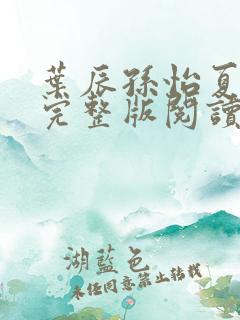 葉辰孫怡夏
完整版閱讀
湖藍色
未經同意禁止轉載